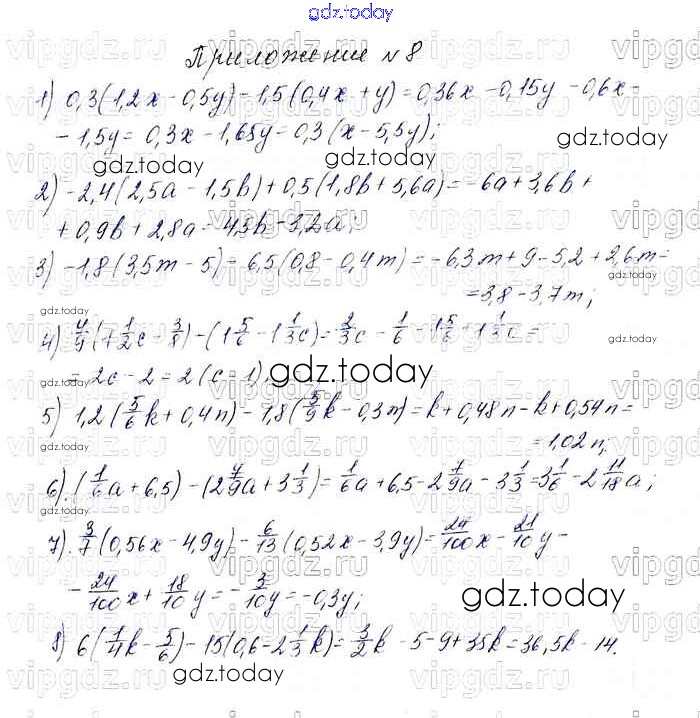 gdz.today
Приложение №8
1) 0,3(1,2x - 0,5y) - 1,5(0,4x + y) = 0,36x - 0,15y - 0,6x -
- 1,5y = 0,3x - 1,65y = 0,3(x - 5,5y);
gdz.today gdz.today
2) -2,4(2,5a - 1,5b) + 0,5(1,8b + 5,6a) = -6a + 3,6b +
+ 0,9b + 2,8a = 4,5b - 3,2a;
3) -1,8(3,5m - 5) - 6,5(0,8 - 0,4m) = -6,3m + 9 - 5,2 + 2,6m =
= 3,8 - 3,7m;
gdz.today
4) 4/9(1 1/2c - 3/8) - (1 5/6 - 1 1/3c) = 2/3c - 1/6 - 1 5/6 + 1 1/3c =
= 2c - 2 = 2(c - 1);
gdz.today gdz.today
5) 1,2(5/6k + 0,4n) - 1,8(5/9k - 0,3n) = k + 0,48n - k + 0,54n =
= 1,02n;
gdz.today
6). (1/6a + 6,5) - (2 7/9a + 3 1/3) = 1/6a + 6,5 - 2 7/9a - 3 1/3 = 3 1/6 - 2 11/18a;
gdz.today
7). 3/7(0,56x - 4,9y) - 6/13(0,52x - 3,9y) = 24/100x - 21/10y -
- 24/100x + 18/10y = -3/10y = -0,3y;
gdz.today
8) 6(1/4k - 5/6) - 15(0,6 - 2 1/3k) = 3/2k - 5 - 9 + 35k = 36,5k - 14.
gdz.today
vipgdz.ru